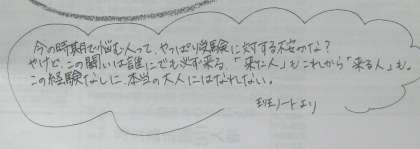 今の時期で悩む人って、やっぱり受験に対する不安かな？
やけど、この闘いは誰にでも必ず来る。「来た人」もこれから「来る人」も。
この経験なしに、本当の大人にはなれない。
班ノートより